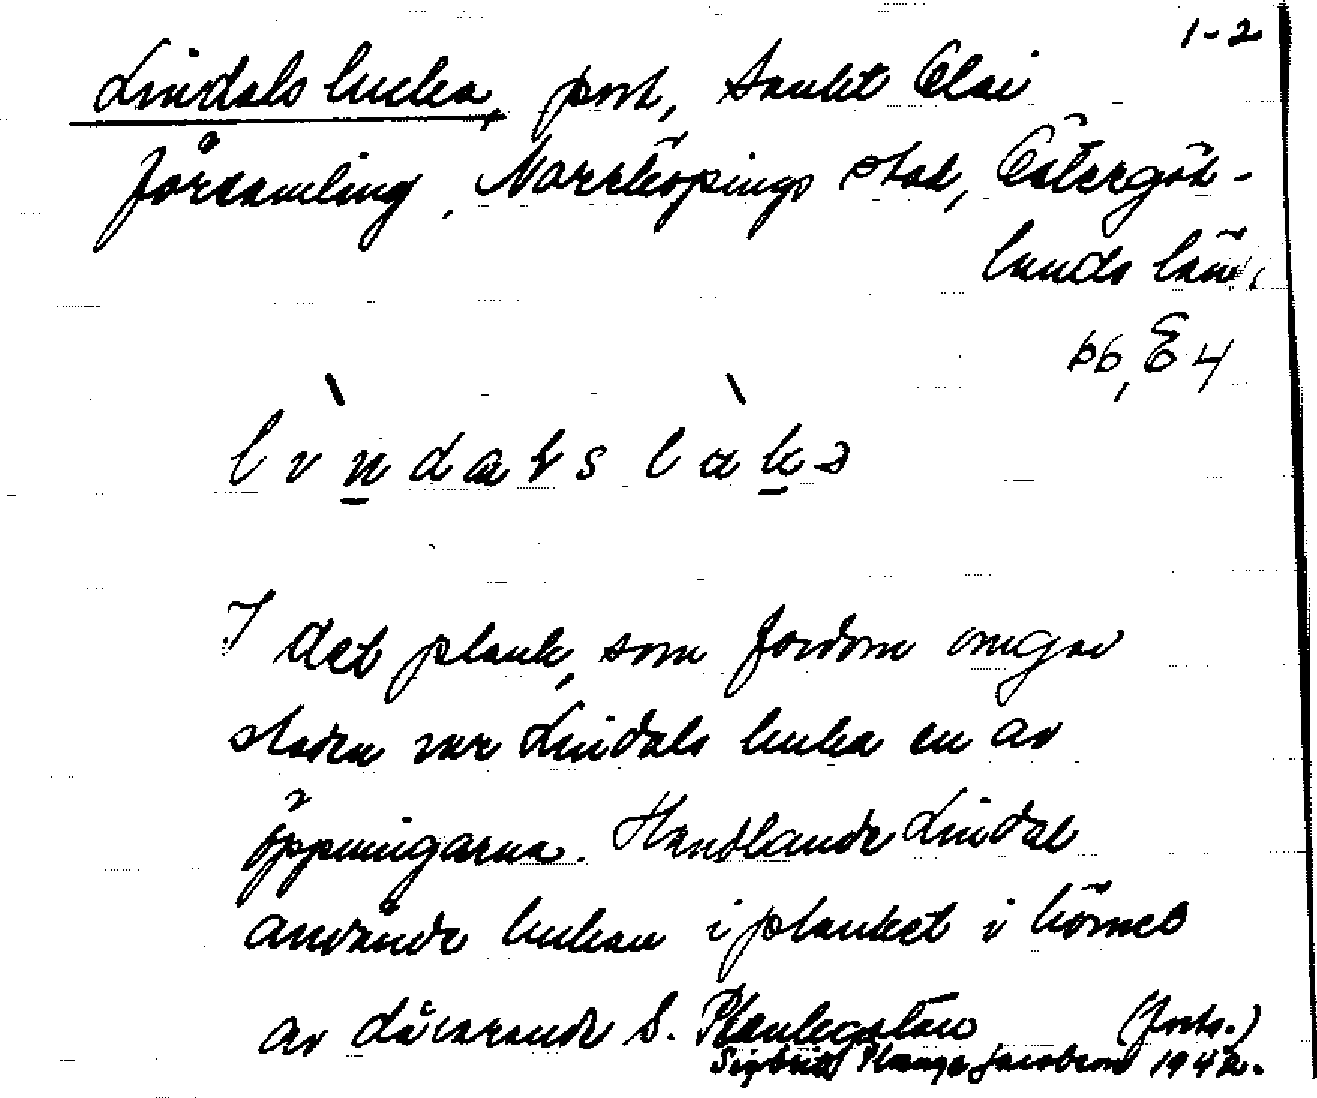 1-2
Lindals lucka, port, Sankt Olai
församling, Norrköpings stad, Östergöt-
lands län,
bb, E 4
I det plank, som fordom omgav
staden var Lindals lucka en av
öppningarna. Handlande Lindal
använde luckan i planket i hörnet
av dåvarande S. Plankgatan (forts.)
Sigbritt Plænge Jacobson 1942.